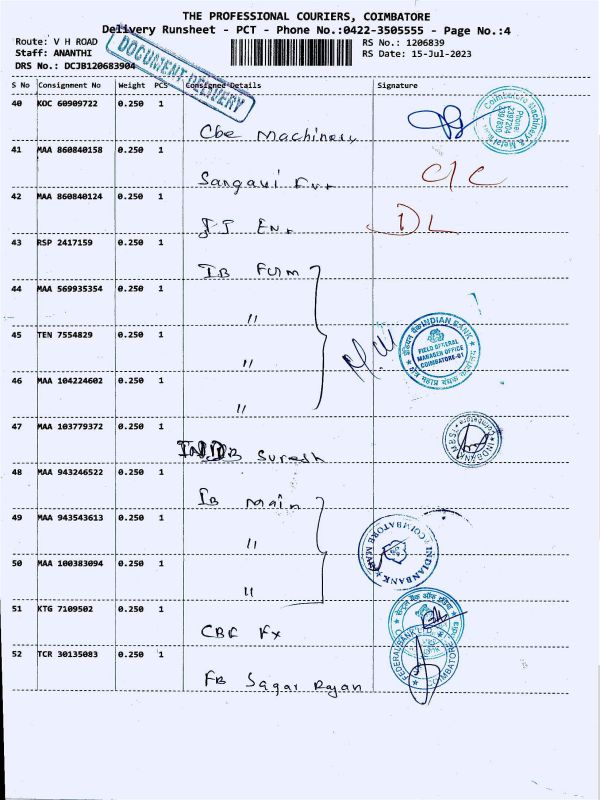 THE PROFESSIONAL COURIERS, COIMBATORE
Delivery Runsheet - PCT - Phone No.:0422-3505555 - Page No.:4
Route: V H ROAD
Staff: ANANTHI
DRS No.: DCJB120683904
RS No.: 1206839
RS Date: 15-Jul-2023
DOCUMENT DELIVERY
S No Consignment No Weight PCS Consigned Details Signature
40 KOC 60909722 0.250 1
Cbe Machinery
41 MAA 860840158 0.250 1
Sangavi
C/C
42 MAA 860840124 0.250 1
DL
43 RSP 2417159 0.250 1
IB Fum
44 MAA 569935354 0.250 1
"
45 TEN 7554829 0.250 1
"
INDIAN BANK
FIELD GENERAL
MANAGER OFFICE
COIMBATORE-01
46 MAA 104224602 0.250 1
"
47 MAA 103779372 0.250 1
Suresh
48 MAA 943246522 0.250 1
IB Main
49 MAA 943543613 0.250 1
"
INDIANBANK
COIMBATORE MAIN
50 MAA 100383094 0.250 1
"
51 KTG 7109502 0.250 1
CBE Fx
52 TCR 30135083 0.250 1
FB Sagar Rajan
FEDERAL BANK LTD.
COIMBATORE